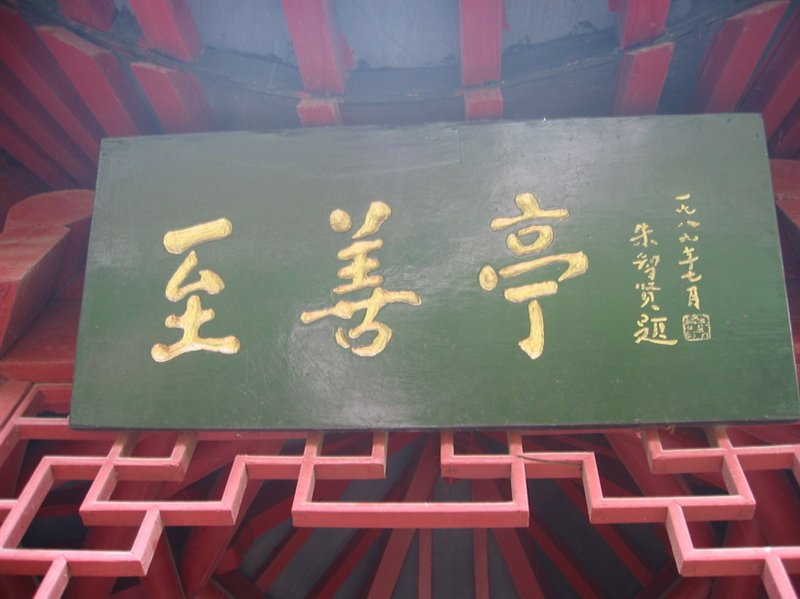 至善亭
一九八九年七月
朱智贤题